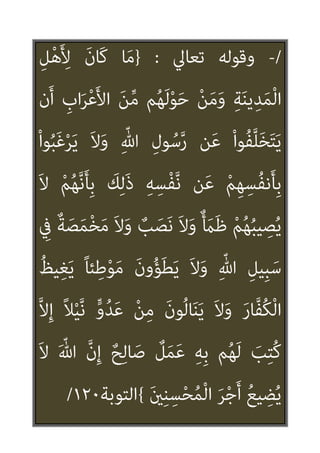 /- وقوله تعالي : {مَا كَانَ لِأَهْلِ
الْمَدِينَةِ وَمَنْ حَوْلَهُم مِّنَ الأَعْرَابِ أَن
يَتَخَلَّفُواْ عَن رَّسُولِ اللّهِ وَلاَ يَرْغَبُواْ
بِأَنفُسِهِمْ عَن نَّفْسِهِ ذَلِكَ بِأَنَّهُمْ لاَ
يُصِيبُهُمْ ظَمَأٌ وَلاَ نَصَبٌ وَلاَ مَخْمَصَةٌ فِي
سَبِيلِ اللّهِ وَلاَ يَطَؤُونَ مَوْطِئاً يَغِيظُ
الْكُفَّارَ وَلاَ يَنَالُونَ مِنْ عَدُوٍّ نَّيْلاً إِلاَّ
كُتِبَ لَهُم بِهِ عَمَلٌ صَالِحٌ إِنَّ اللّهَ لاَ
يُضِيعُ أَجْرَ الْمُحْسِنِينَ }التوبة١٢٠/